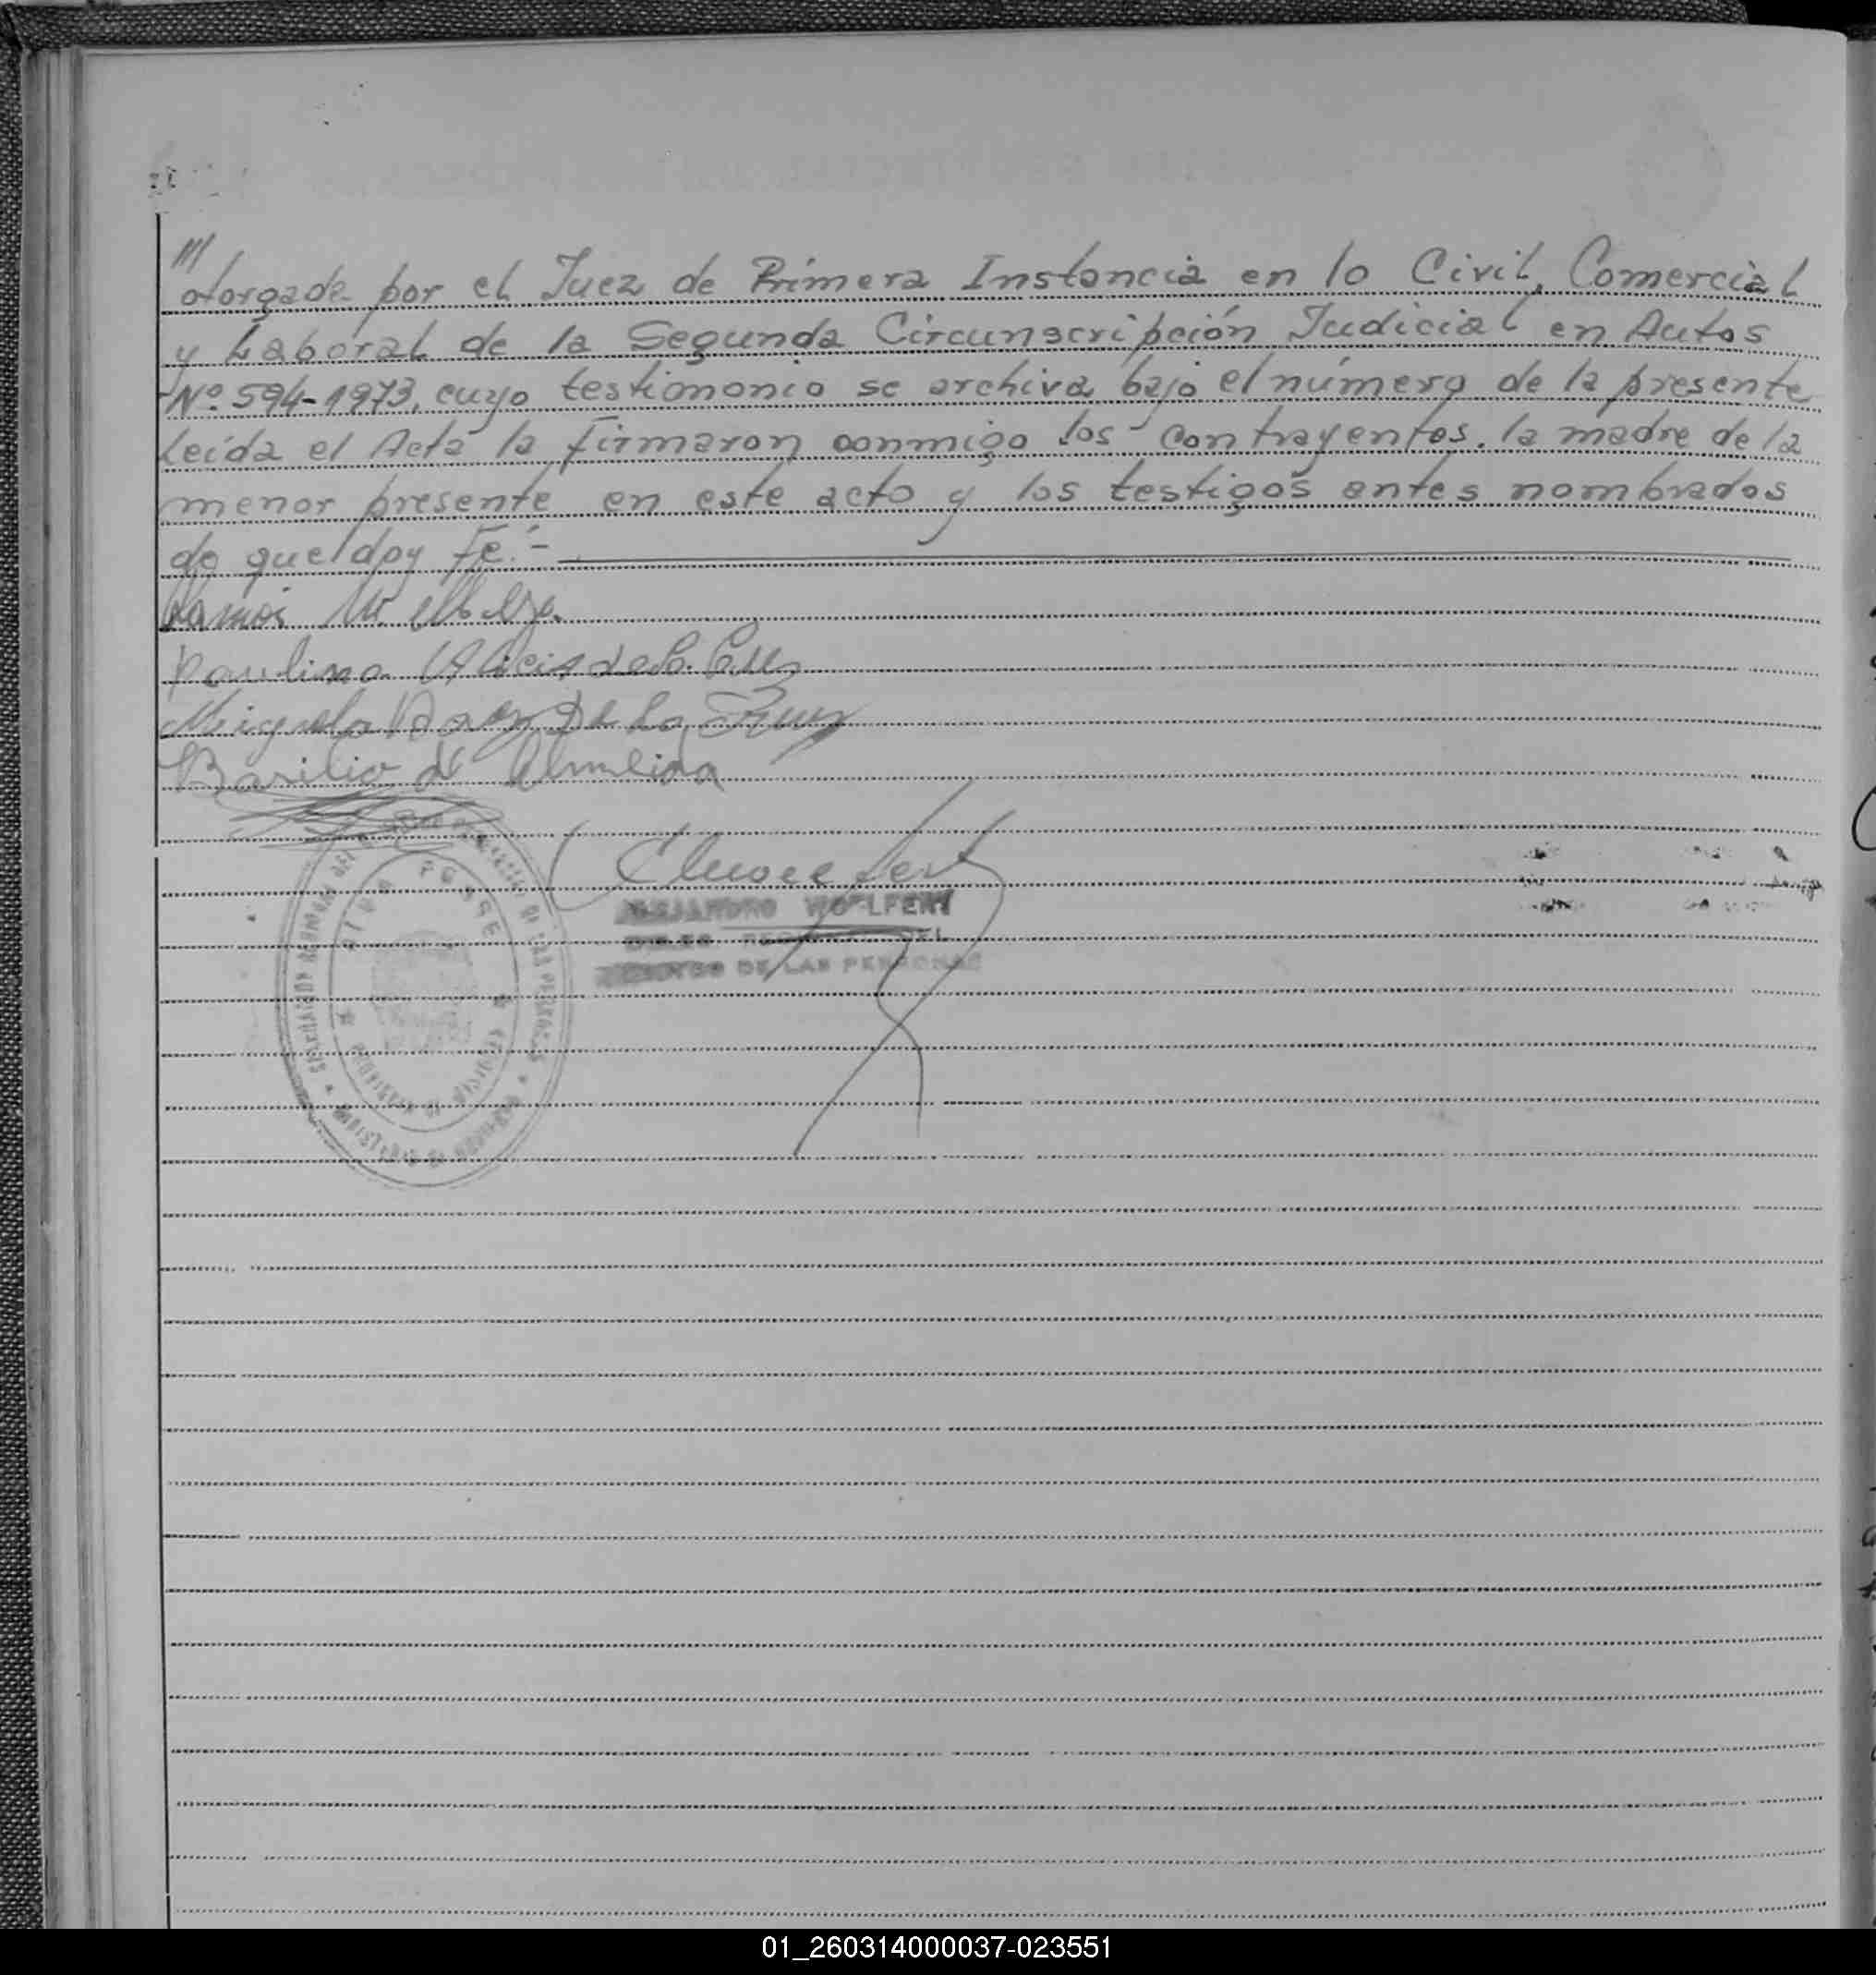 ///
otorgada por el Juez de Primera Instancia en lo Civil, Comercial
y Laboral de la Segunda Circunscripción Judicial en Autos
Nº 594-1973, cuyo testimonio se archiva bajo el número de la presente
Leída el Acta la firmaron conmigo los contrayentes, la madre de la
menor presente en este acto y los testigos antes nombrados
de que doy Fe.-
Ramón M.
Paulina Alicia de la Cruz
Miguela Baez De la Cruz
Basilio d' Almeida
ALEJANDRO
DE LAS PERSONAS
01_260314000037-023551